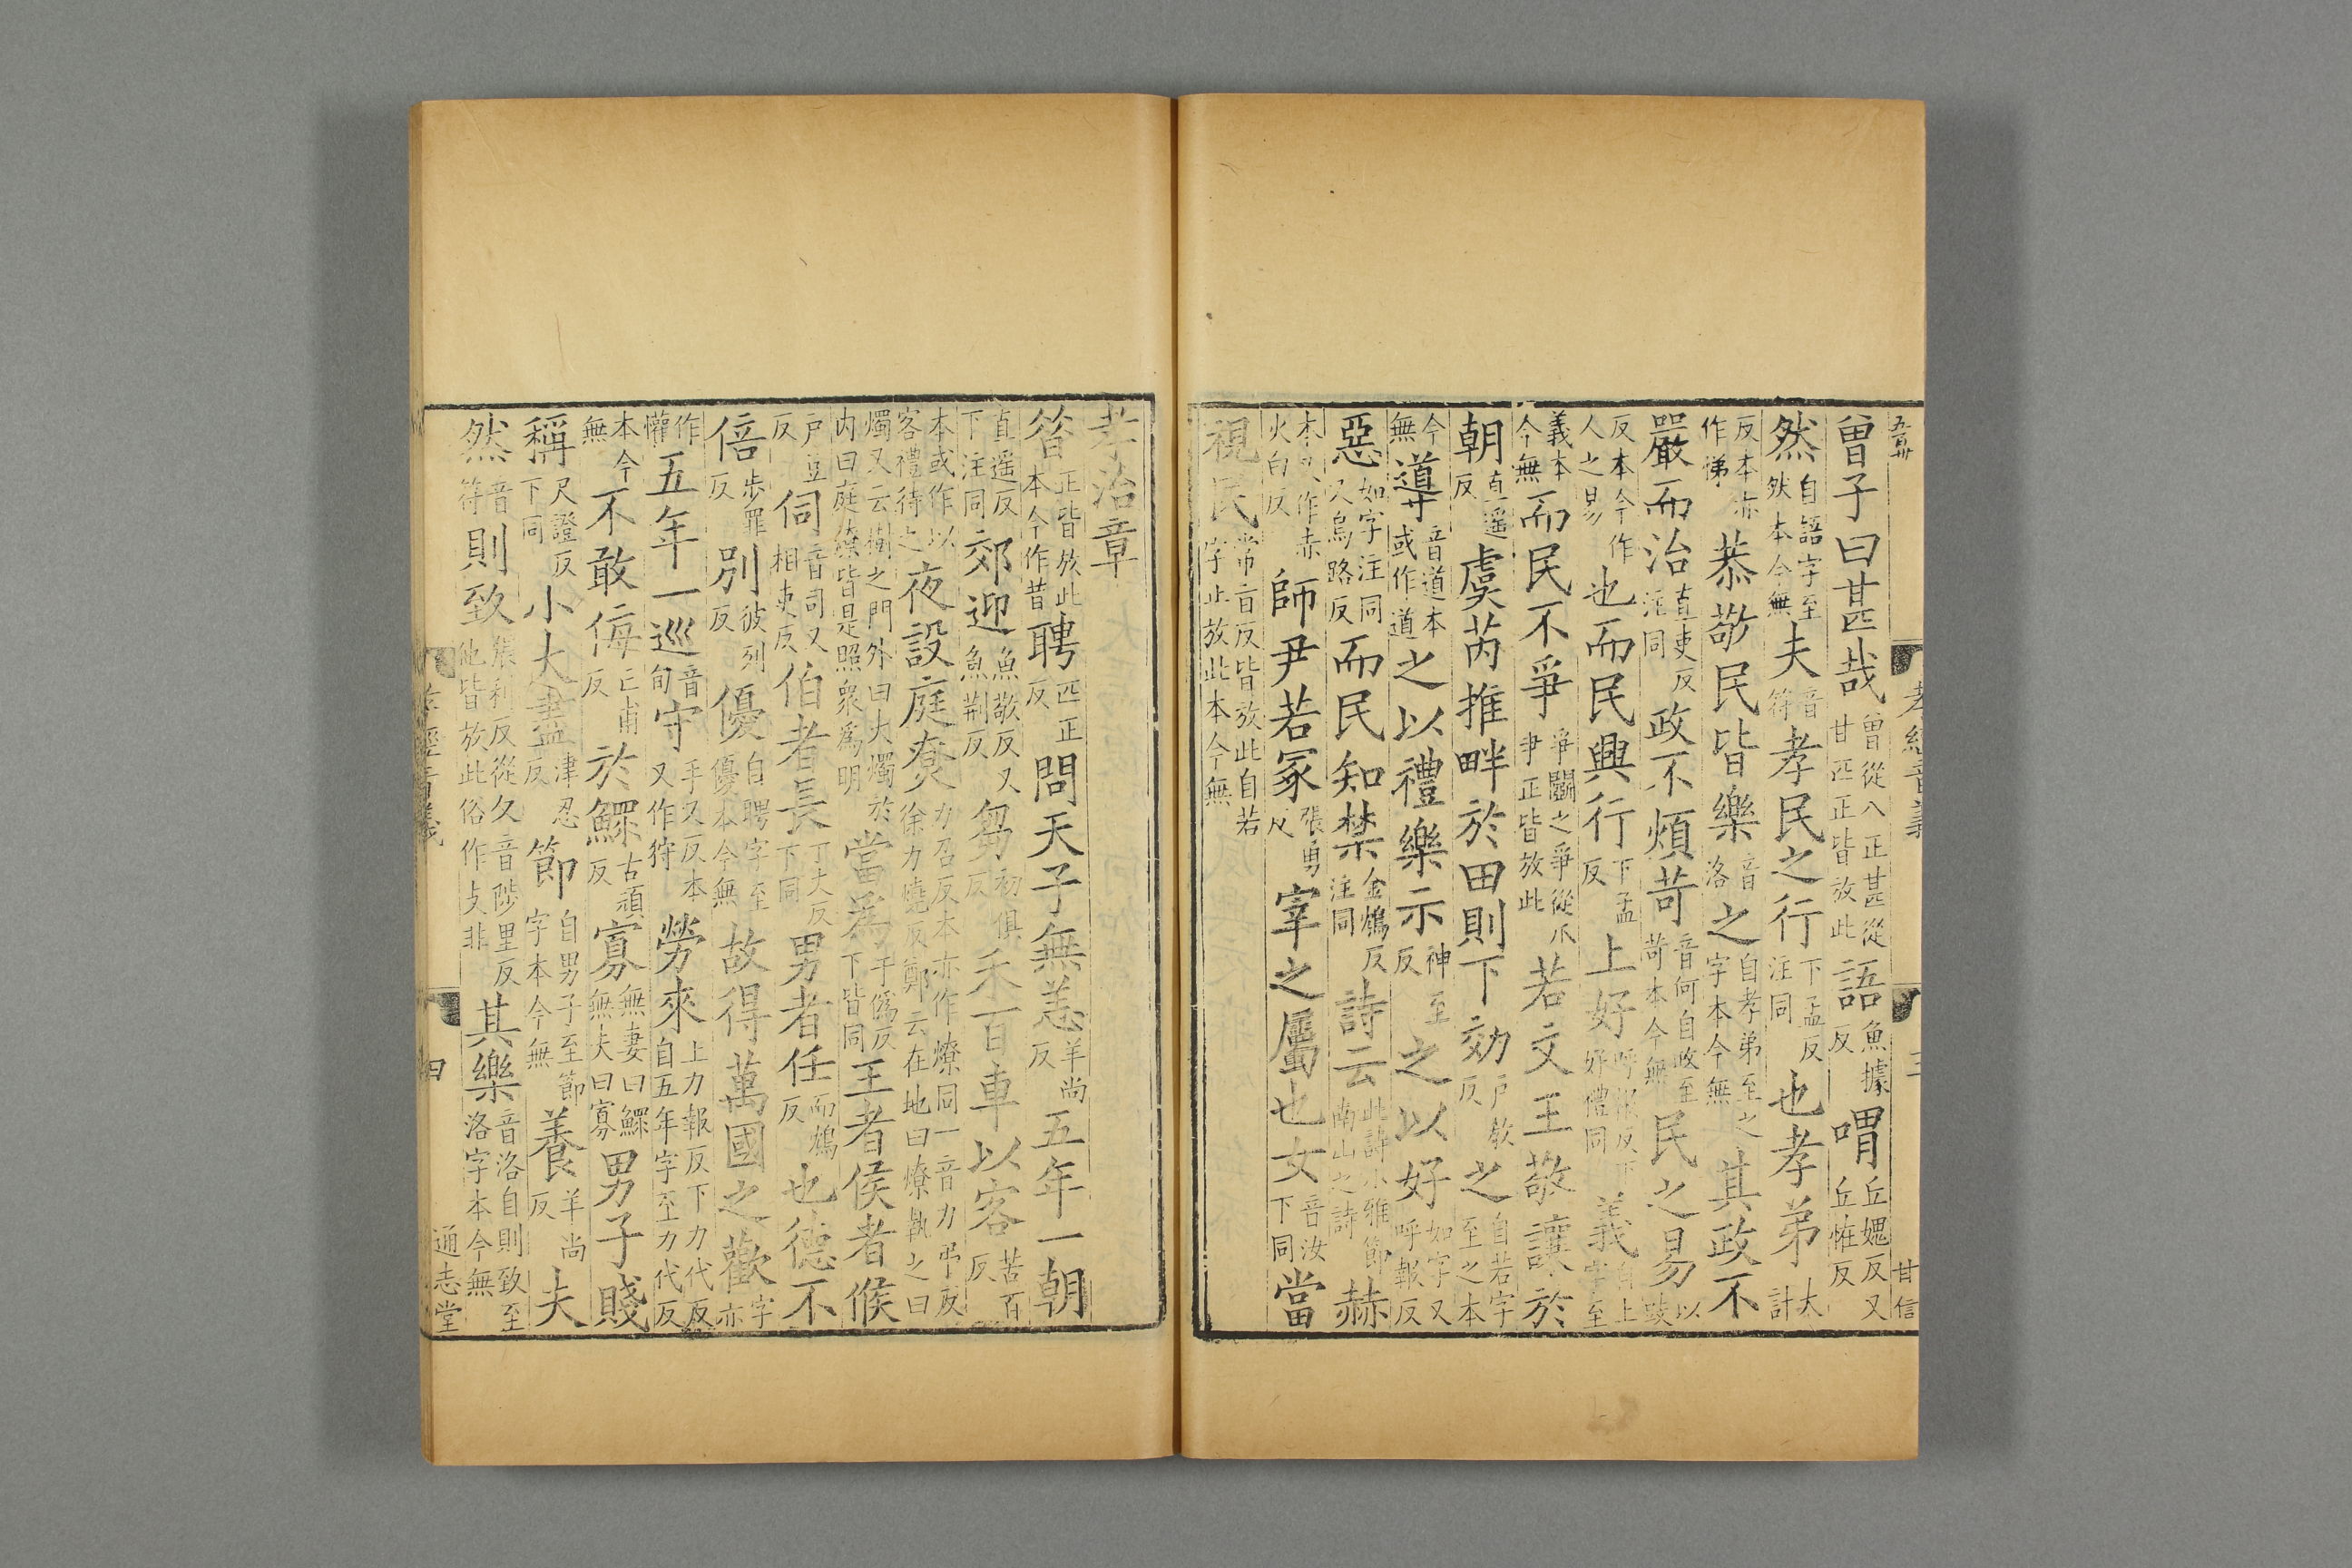 五百卅 孝經音義 三 甘信
曾子曰甚哉曾從八正甚從甘匹正皆放此語魚據反喟丘媿反又丘恠反
然自語字至然本今無夫音符孝民之行下孟反注同也孝弟大計
反本亦作悌恭敬民皆樂音洛之自孝弟至之字本今無其政不
嚴而治直吏反注同政不煩苛音何自政至苛本今無民之易以豉
反本今作人之易也而民興行下孟反上好呼報反下好禮同義自上字至
義本今無而民不爭爭鬬之爭從爪尹正皆放此若文王敬讓於
朝直遥反虞芮推畔於田則下効戶教反之自若字至之本
今無導音道本或作道之以禮樂示神至反之以好如字又呼報反
惡如字注同又烏路反而民知禁金鴆反注同詩云此詩小雅節南山之詩赫
本又作赤火白反師尹若冢張勇反宰之屬也女音汝下同當
視民常旨反皆放此自若字止放此本今無
孝治章
昝正皆放此本今作昔聘匹正反問天子無恙羊尚反五年一朝
直遥反下注同郊迎魚敬反又魚荆反芻初俱反禾百車以客苦百反
本或作以客禮待之夜設庭尞力召反本亦作燎同一音力弔反徐力燒反鄭云在地曰燎執之曰
燭又云樹之門外曰大燭於内曰庭燎皆是照衆爲明當爲于僞反下皆同王者侯者候
戶豆反伺音司又相吏反伯者長丁丈反下同男者任而鴆反也德不
倍步罪反別彼列反優自聘字至優本今無故得萬國之歡字亦
作懽五年一巡音旬守手又反本又作狩勞來上力報反下力代反自五年字至力代反
本今無不敢侮亡甫反於鰥古頑反寡無妻曰鰥無夫曰寡男子賤
稱尺證反下同小大盡津忍反節自男子至節字本今無養羊尚反夫
然音符則致張利反從夂音陟里反他皆放此俗作攵非其樂音洛自則致至洛字本今無
孝經音義 四 通志堂